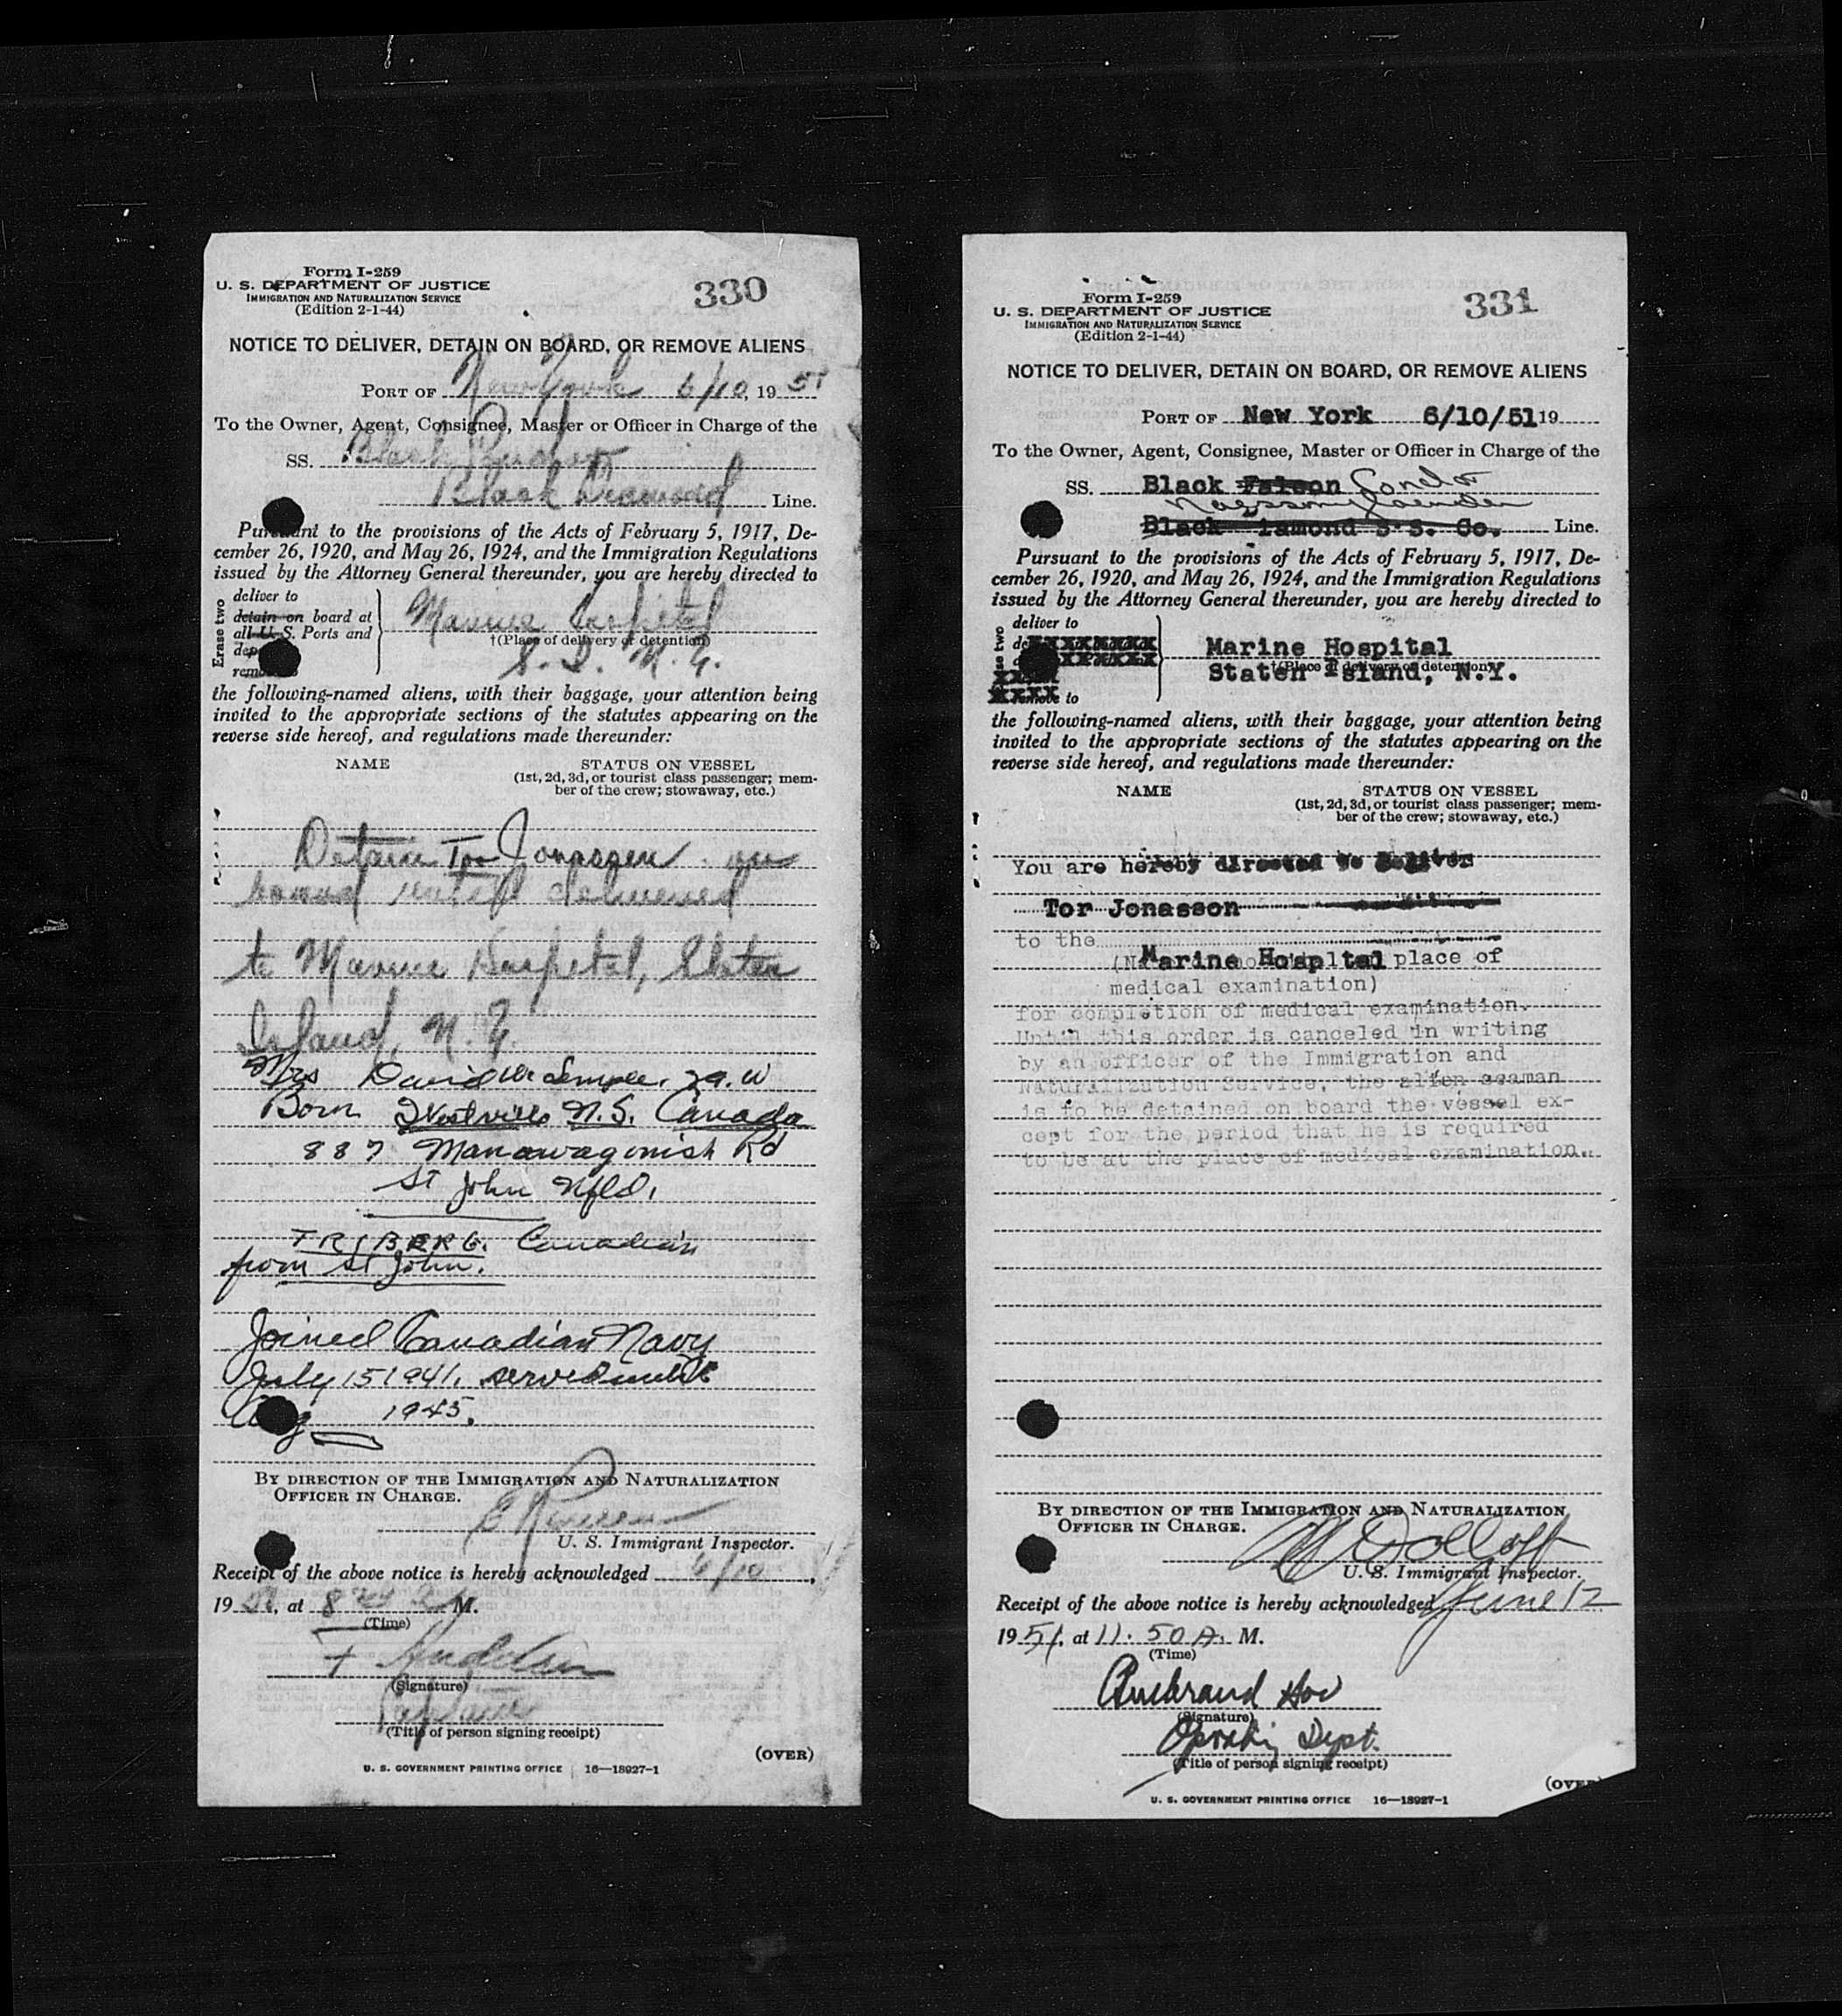 Form I-259
U. S. DEPARTMENT OF JUSTICE
IMMIGRATION AND NATURALIZATION SERVICE
(Edition 2-1-44)
330
NOTICE TO DELIVER, DETAIN ON BOARD, OR REMOVE ALIENS
PORT OF New York 6/10, 19 51
To the Owner, Agent, Consignee, Master or Officer in Charge of the
SS. Black
Black Diamond Line.
Pursuant to the provisions of the Acts of February 5, 1917, De-
cember 26, 1920, and May 26, 1924, and the Immigration Regulations
issued by the Attorney General thereunder, you are hereby directed to
Erase two
deliver to
detain on board at
all U. S. Ports and
Marine Hospital
†(Place of delivery or detention)
S. I. N. Y.
the following-named aliens, with their baggage, your attention being
invited to the appropriate sections of the statutes appearing on the
reverse side hereof, and regulations made thereunder:
NAME
STATUS ON VESSEL
(1st, 2d, 3d, or tourist class passenger; mem-
ber of the crew; stowaway, etc.)
Detain Tor on
board until delivered
to Marine Hospital, Staten
Island, N. Y.
Mrs David W Semple. 29. W
Born Westville N.S. Canada
887 Manawagonish Rd
St John Nfld.
TRIBERG. Canadian
from St John.
Joined Canadian Navy
July 15 1941. served until
Aug 1945.
BY DIRECTION OF THE IMMIGRATION AND NATURALIZATION
OFFICER IN CHARGE.
U. S. Immigrant Inspector.
Receipt of the above notice is hereby acknowledged 6/10,
19 51, at 8 M.
(Time)
(Signature)
Captain
(Title of person signing receipt)
(OVER)
U. S. GOVERNMENT PRINTING OFFICE 16—18927-1
Form I-259
U. S. DEPARTMENT OF JUSTICE
IMMIGRATION AND NATURALIZATION SERVICE
(Edition 2-1-44)
331
NOTICE TO DELIVER, DETAIN ON BOARD, OR REMOVE ALIENS
PORT OF New York 6/10/51 19
To the Owner, Agent, Consignee, Master or Officer in Charge of the
SS. Black Falcon Condor
Black iamond S S. Co. Line.
Pursuant to the provisions of the Acts of February 5, 1917, De-
cember 26, 1920, and May 26, 1924, and the Immigration Regulations
issued by the Attorney General thereunder, you are hereby directed to
deliver to
Marine Hospital
†(Place of delivery or detention)
Staten Island, N.Y.
to
the following-named aliens, with their baggage, your attention being
invited to the appropriate sections of the statutes appearing on the
reverse side hereof, and regulations made thereunder:
NAME
STATUS ON VESSEL
(1st, 2d, 3d, or tourist class passenger; mem-
ber of the crew; stowaway, etc.)
You are hereby directed to deliver
Tor Jonasson
to the
Marine Hospital place of
medical examination)
for completion of medical examination.
Until this order is canceled in writing
by an officer of the Immigration and
Naturalization Service, the alien seaman
is to be detained on board the vessel ex-
cept for the period that he is required
to be at the place of medical examination.
BY DIRECTION OF THE IMMIGRATION AND NATURALIZATION
OFFICER IN CHARGE.
U. S. Immigrant Inspector.
Receipt of the above notice is hereby acknowledged June 12
19 51, at 11.50 A. M.
(Time)
(Signature)
Dept.
(Title of person signing receipt)
U. S. GOVERNMENT PRINTING OFFICE 16—18927-1